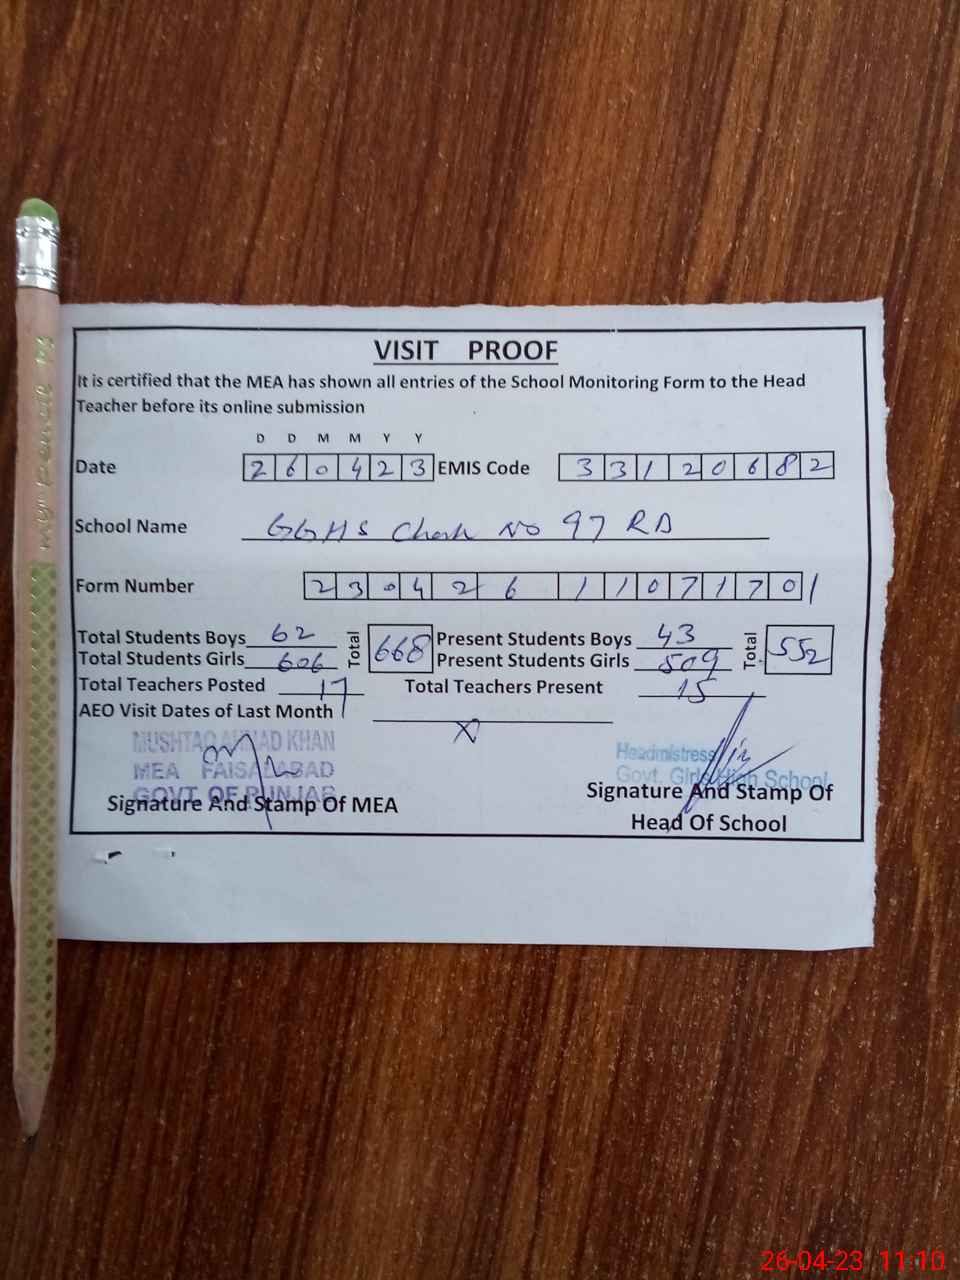 VISIT PROOF
It is certified that the MEA has shown all entries of the School Monitoring Form to the Head
Teacher before its online submission
D D M M Y Y
Date 2 6 0 4 2 3 EMIS Code 3 3 1 2 0 6 8 2
School Name GGHS Chak No 97 RB
Form Number 2 3 0 4 2 6 1 1 0 7 1 7 0 1
Total Students Boys 62 Total 668 Present Students Boys 43 Total 552
Total Students Girls 606 Present Students Girls 509
Total Teachers Posted 17 Total Teachers Present 15
AEO Visit Dates of Last Month X
MUSHTAQ AHMAD KHAN
MEA FAISALABAD
GOVT. OF PUNJAB
Signature And Stamp Of MEA
Headmistress
Govt. Girls High School
Signature And Stamp Of
Head Of School
26-04-23 11:10